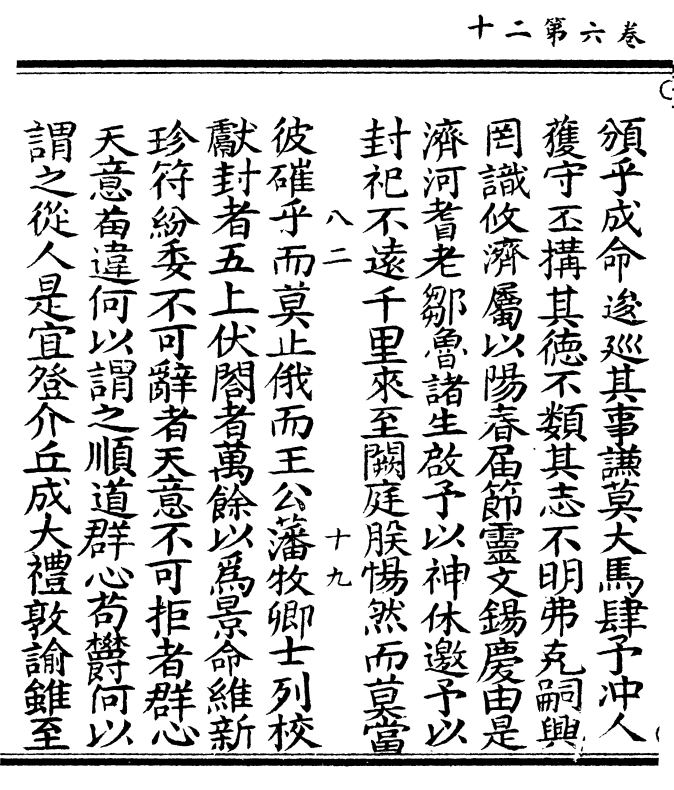 卷六第二十
頒乎成命逡廵其事謙莫大焉肆予沖人
獲守丕搆其徳不類其志不明弗克嗣興
罔識攸濟屬以陽春届節靈文錫慶由是
濟河耆老鄒魯諸生啟予以神休邀予以
封祀不遠千里來至闕庭朕惕然而莫當
八二
十九
彼確乎而莫止俄而王公藩牧卿士列校
獻封者五上伏閤者萬餘以爲景命維新
珍符紛委不可辭者天意不可拒者群心
天意苟違何以謂之順道群心苟欝何以
謂之從人是宜登介丘成大禮敦諭雖至